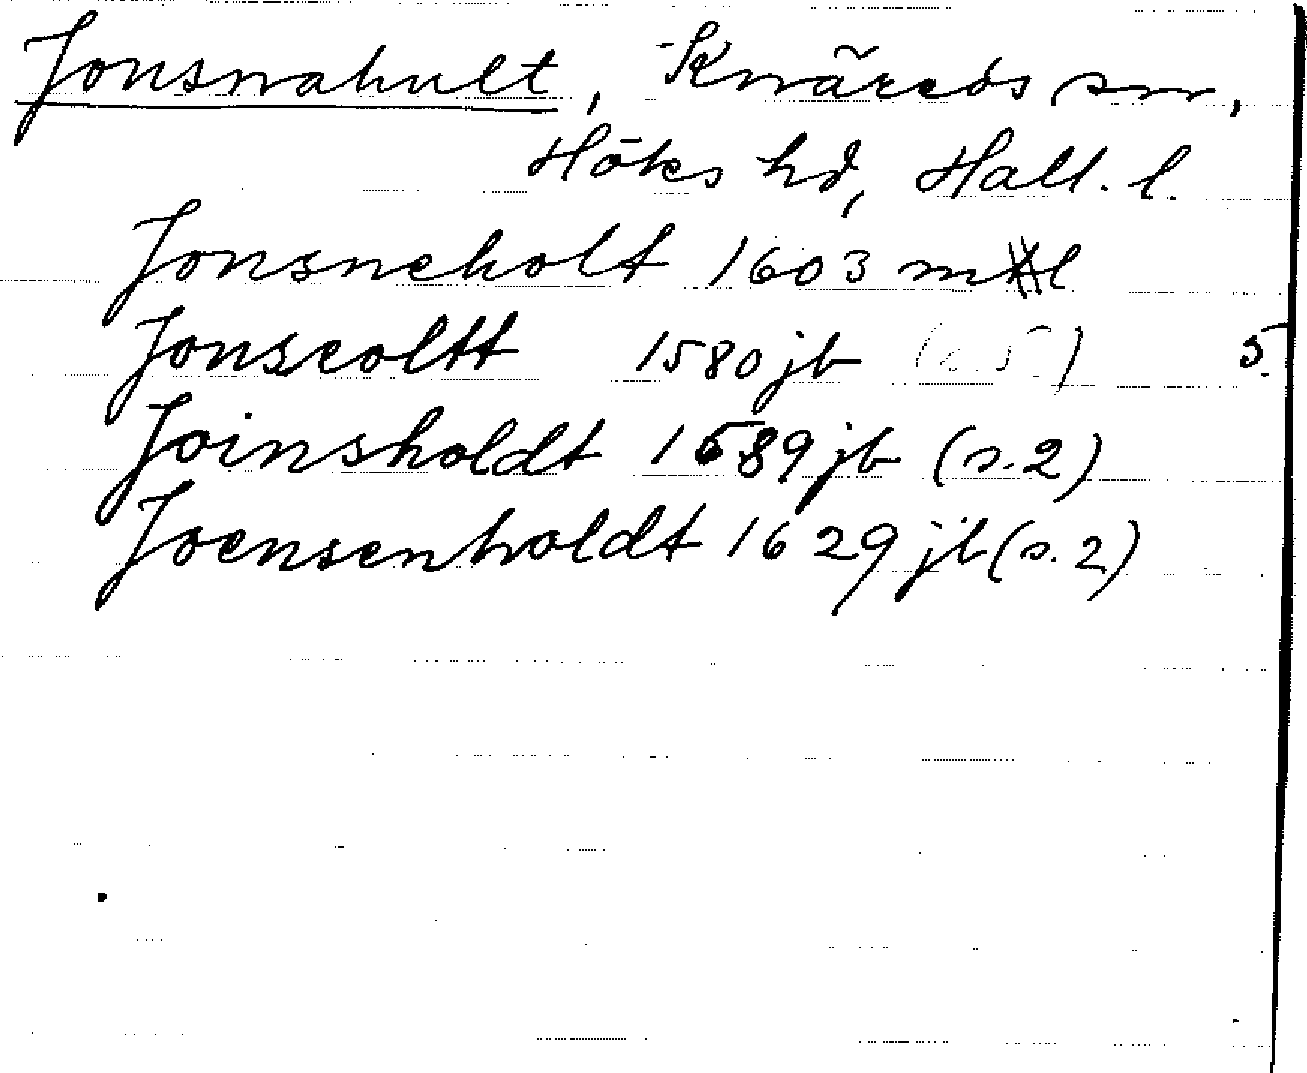 Jonsnahult, Knäreds sn,
Höks hd, Hall. l.
Jonsneholt 1603 mtl
Jonseoltt 1580 jb (s. 5) 5.
Joinsholdt 1689 jb (s. 2)
Joensenholdt 1629 jb (s. 2)